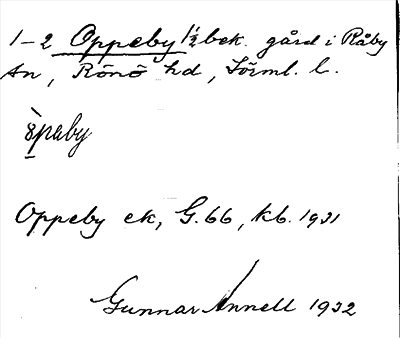 1-2 Oppeby 1½ bek. gård i Råby
sn, Rönö hd, Sörml. l.
Oppeby ek, G. 66, kb. 1931
Gunnar Annell 1932